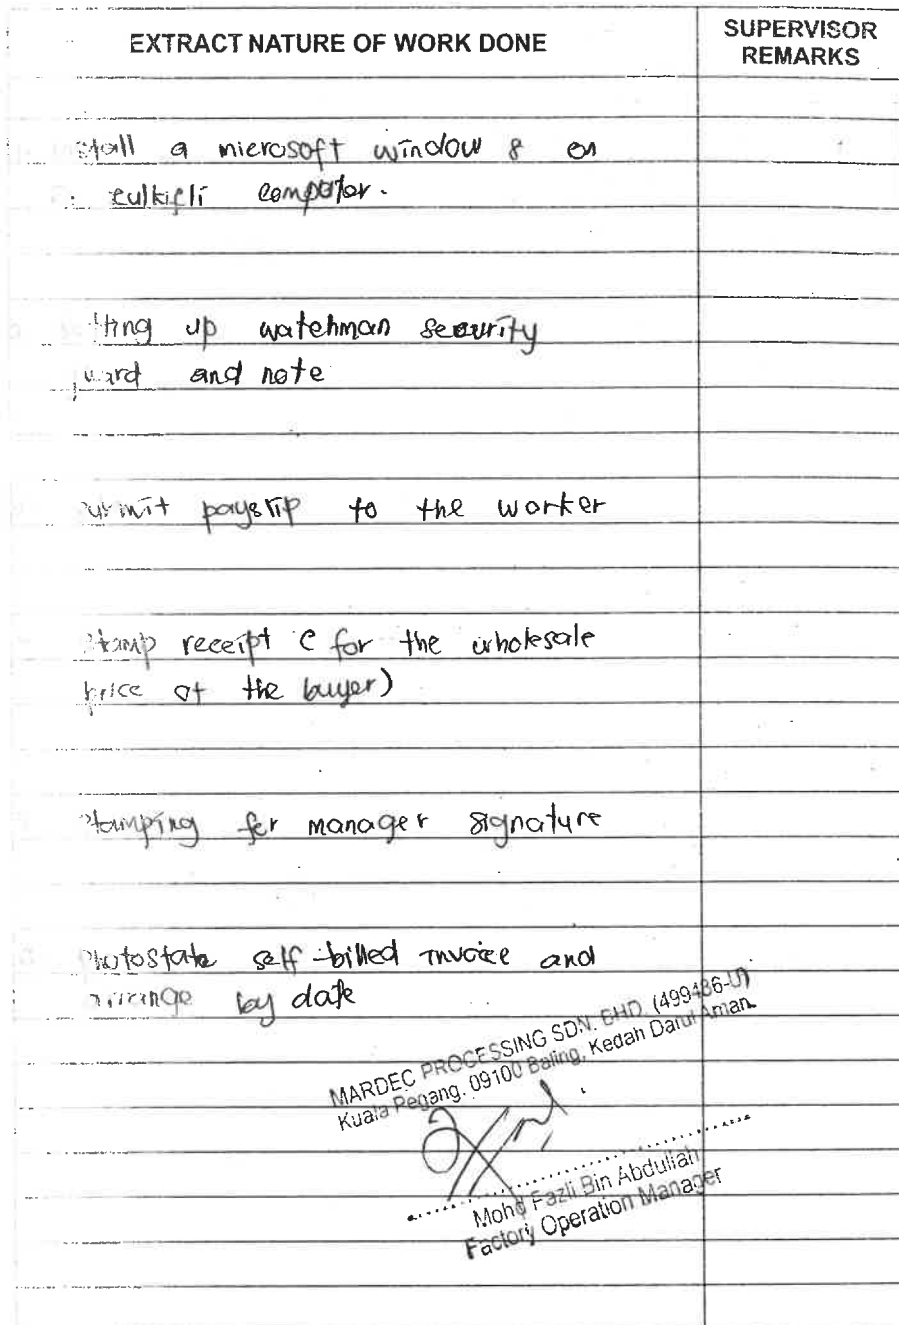 EXTRACT NATURE OF WORK DONE
SUPERVISOR
REMARKS
stall a microsoft window 8 on
zulkifli computer.
tting up watchman security
uard and note
payslip to the worker
stamp receipt ( for the wholesale
price of the buyer)
stamping for manager signature
Photostate self-billed invoice and
arrange by date
MARDEC PROCESSING SDN. BHD. (499486-U)
Kuala Pegang. 09100 Baling, Kedah Darul Aman.
Mohd Fazli Bin Abdullah
Factory Operation Manager